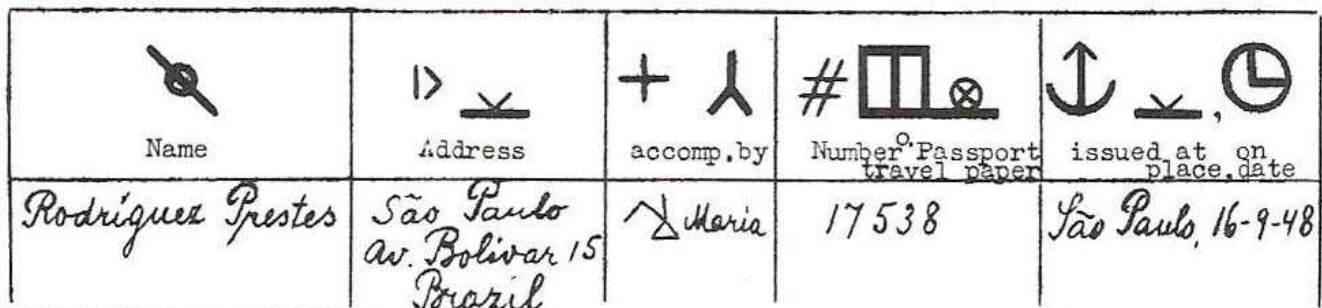 Name
Address
accomp.by
Number o. Passport
travel paper
issued at on
place, date
Rodríguez Prestes
São Paulo
Av. Bolivar 15
Brazil
Maria
17538
São Paulo, 16-9-48